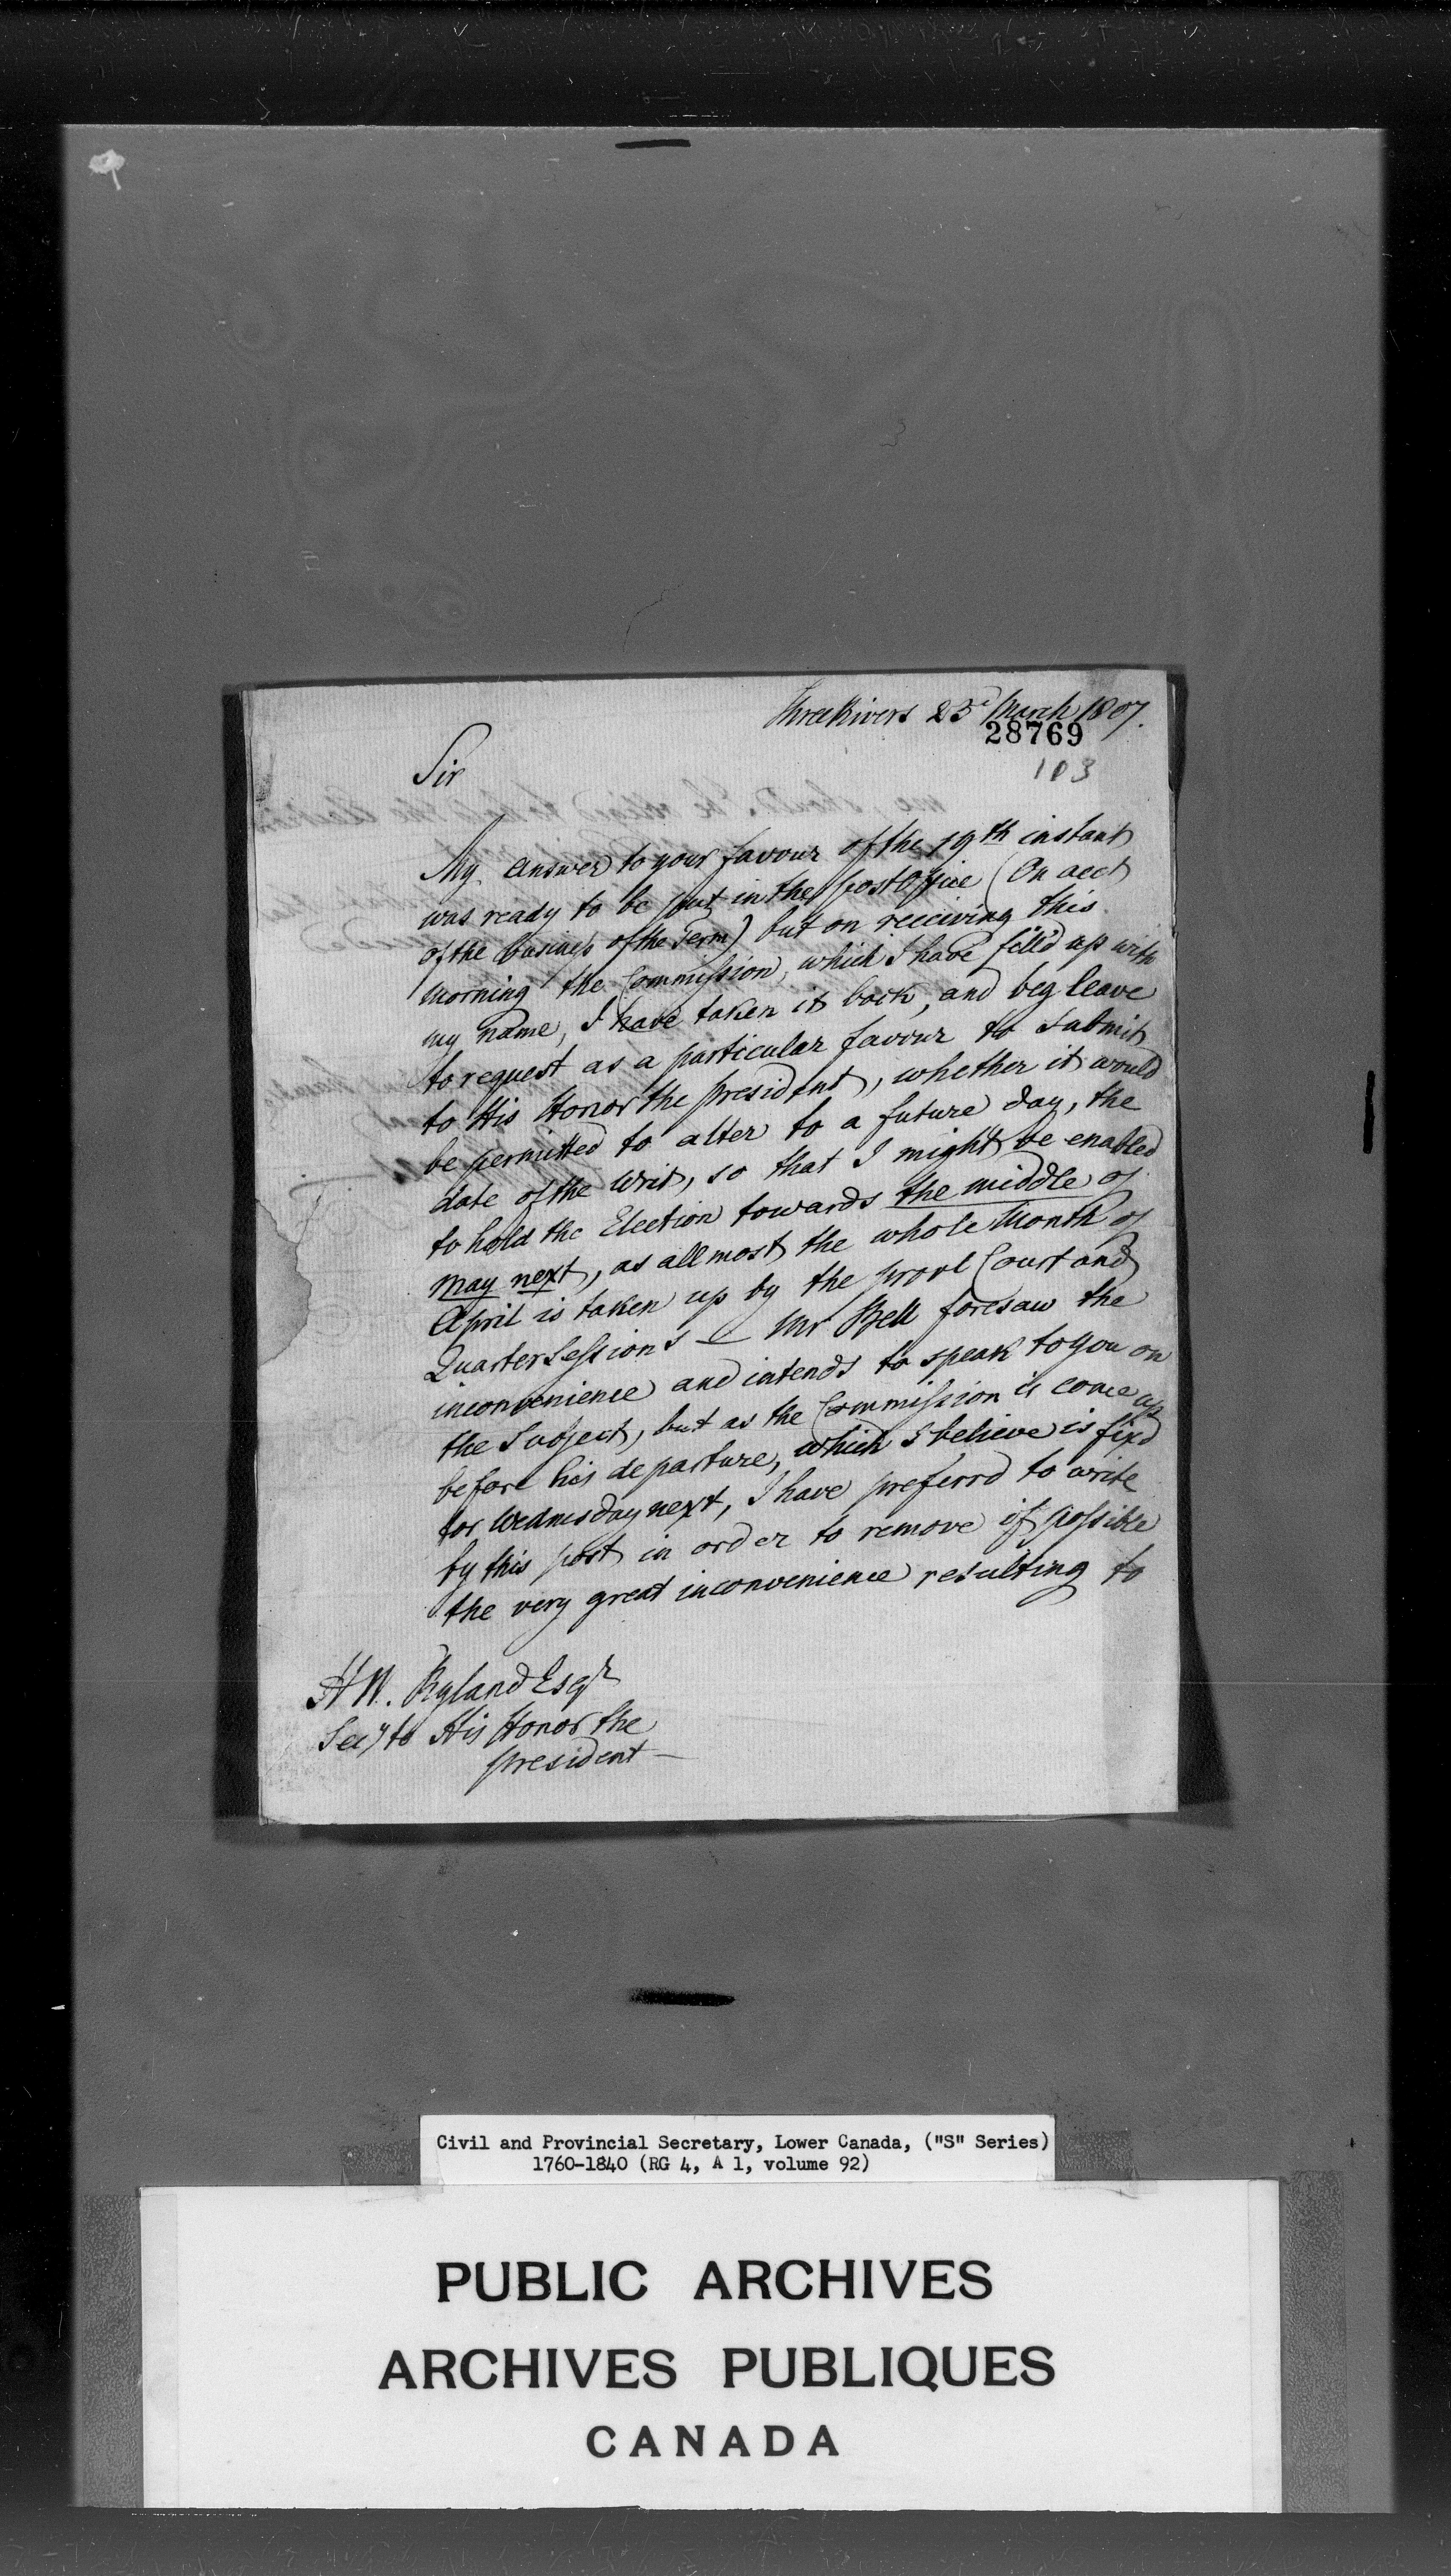 Three Rivers 23d March 1807.
28769
103
Sir
My answer to your favour of the 19th instant
was ready to be put in the post Office (On acct
of the business of the Term) but on receiving this
morning the Commission, which I have fill'd up with
my name, I have taken it back, and beg leave
to request as a particular favour to submit
to His Honor the president, whether it would
be permitted to alter to a future day, the
date of the Writ, so that I might be enabled
to hold the Election towards the middle of
May next, as allmost the whole Month of
April is taken up by the provl Court and
Quarter Sessions — Mr Bell foresaw the
inconvenience and intends to speak to you on
the Subject, but as the Commission is come up
before his departure, which I believe is fixd
for Wednesday next, I have preferrd to write
by this post in order to remove if possible
the very great inconvenience resulting to
H W. Ryland Esqr
Secy to His Honor the
president —
Civil and Provincial Secretary, Lower Canada, ("S" Series)
1760-1840 (RG 4, A 1, volume 92)
PUBLIC ARCHIVES
ARCHIVES PUBLIQUES
CANADA